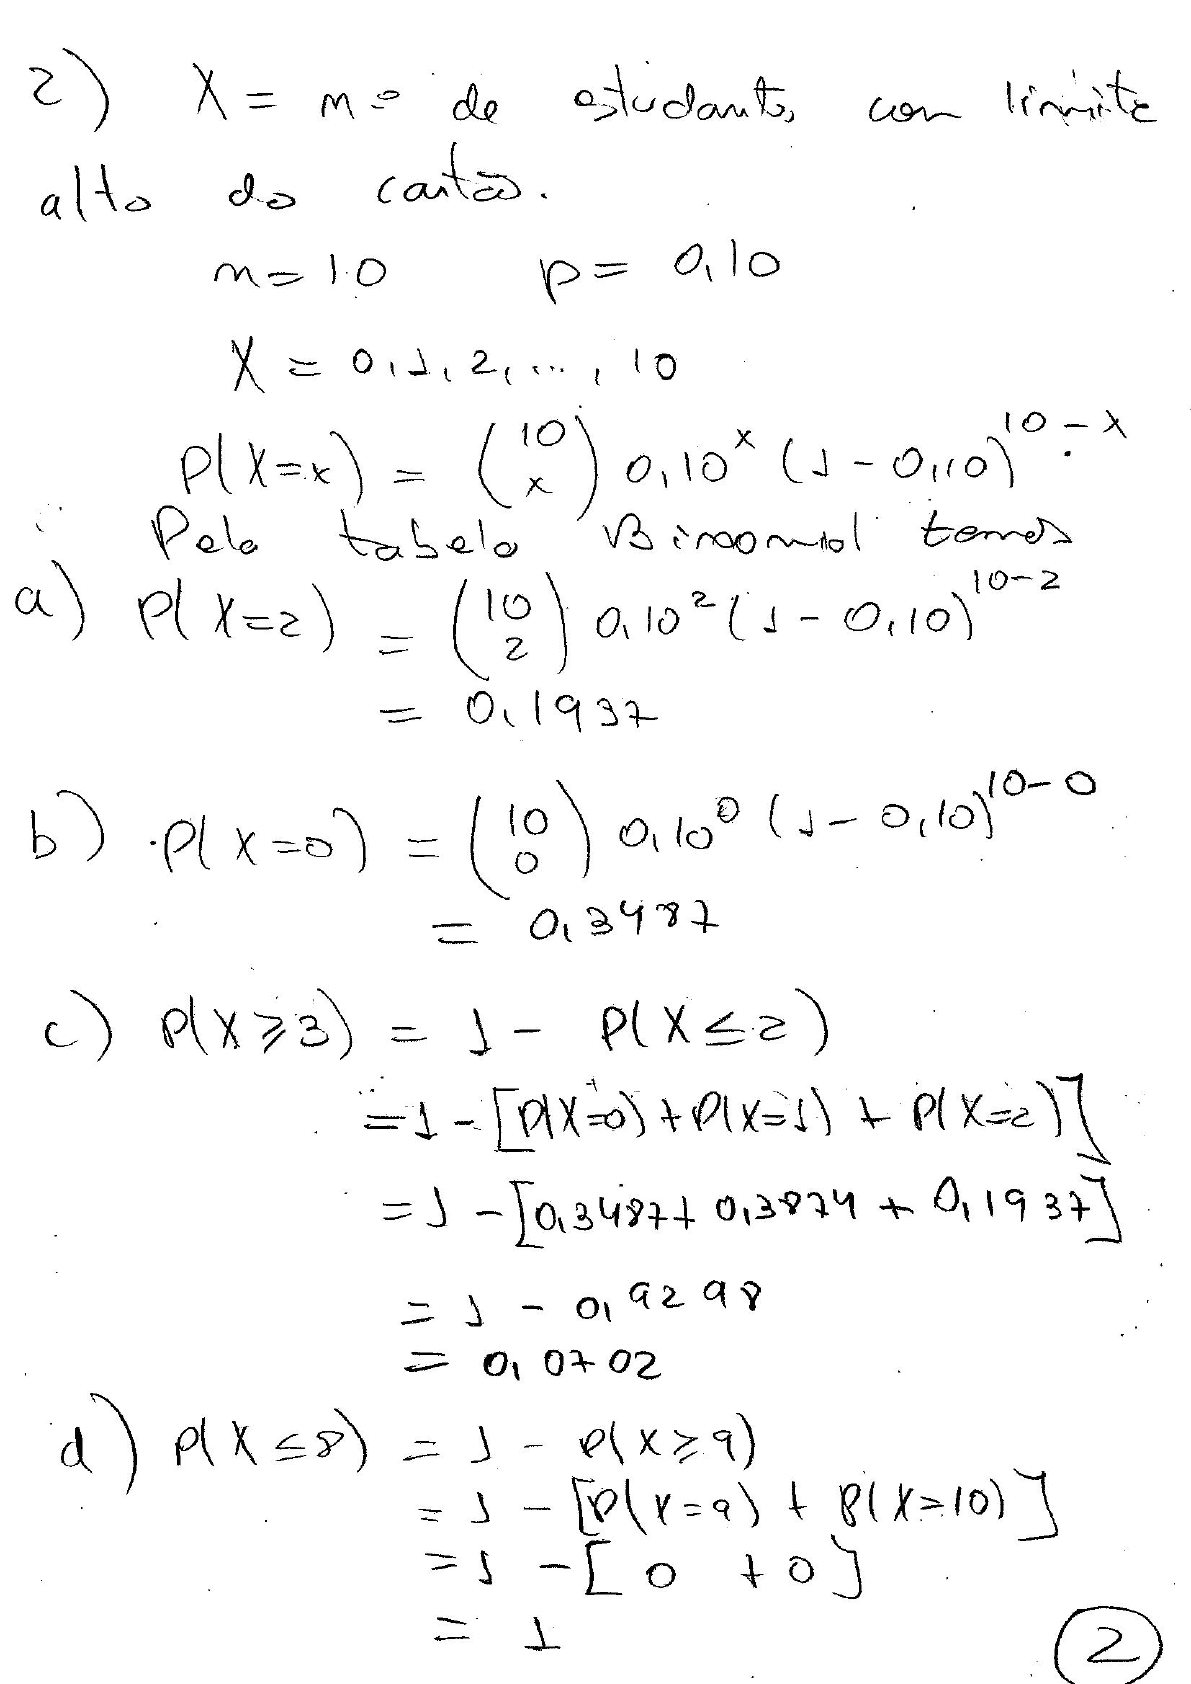 2) X = nº de estudantes com limite
alto do cartão.
n = 10 p = 0,10
X = 0, 1, 2, ..., 10
P(X=x) = (10 x) 0,10^x (1 - 0,10)^10-x
Pela tabela Binomial temos
a) P(X=2) = (10 2) 0,10^2 (1 - 0,10)^10-2
= 0,1937
b) P(X=0) = (10 0) 0,10^0 (1 - 0,10)^10-0
= 0,3487
c) P(X⩾3) = 1 - P(X≤2)
= 1 - [P(X=0) + P(X=1) + P(X=2)]
= 1 - [0,3487 + 0,3874 + 0,1937]
= 1 - 0,9298
= 0,0702
d) P(X≤8) = 1 - P(X⩾9)
= 1 - [P(X=9) + P(X=10)]
= 1 - [0 + 0]
= 1
2